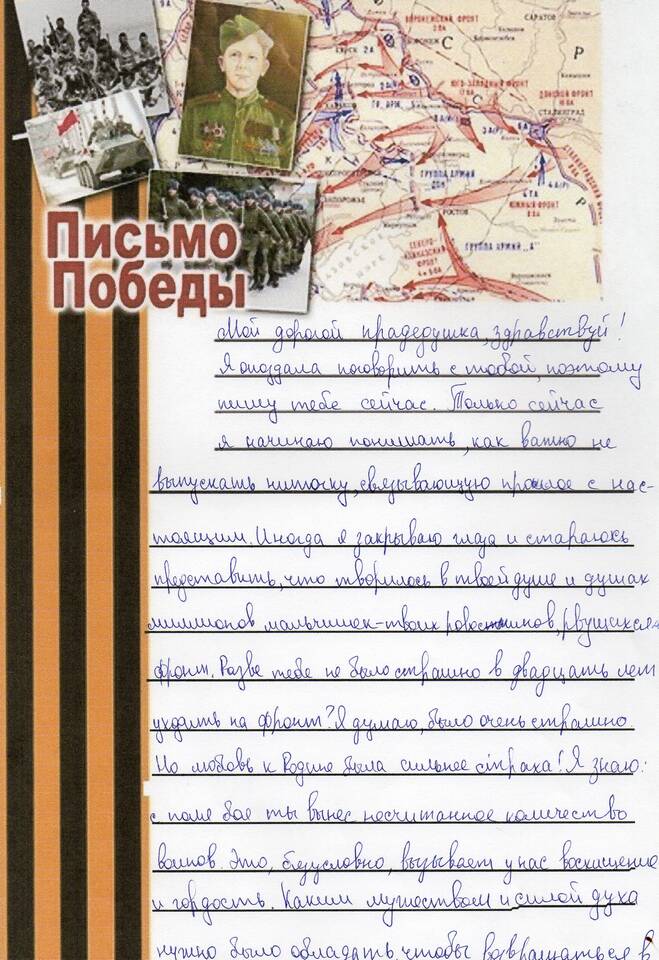 ВОРОНЕЖСКИЙ ФРОНТ
САРАТОВ
ЮГО-ЗАПАДНЫЙ ФРОНТ
ДОНСКОЙ ФРОНТ
СТАЛИНГРАД
ХАРЬКОВ
ГРУППА АРМИЙ
ДОН
ЮЖНЫЙ ФРОНТ
РОСТОВ
СЕВЕРО-
КАВКАЗСКИЙ
ФРОНТ
ГРУППА АРМИЙ „А"
АЗОВСКОЕ
МОРЕ
Письмо
Победы
Мой дорогой прадедушка, здравствуй!
Я опоздала поговорить с тобой, поэтому
пишу тебе сейчас. Только сейчас
я начинаю понимать, как важно не
выпускать ниточку, связывающую прошлое с нас-
тоящим. Иногда я закрываю глаза и стараюсь
представить, что творилось в твоей душе и душах
миллионов мальчишек-твоих ровестников, рвущихся на
фронт. Разве тебе не было страшно в двадцать лет
уходить на фронт? Я думаю, было очень страшно.
Но любовь к Родине была сильнее страха! Я знаю:
с поле бое ты вынес несчитанное количество
воинов. Это, безусловно, вызывает у нас восхищение
и гордость. Каким мужеством и силой духа
нужно было обладать, чтобы возвращаться в